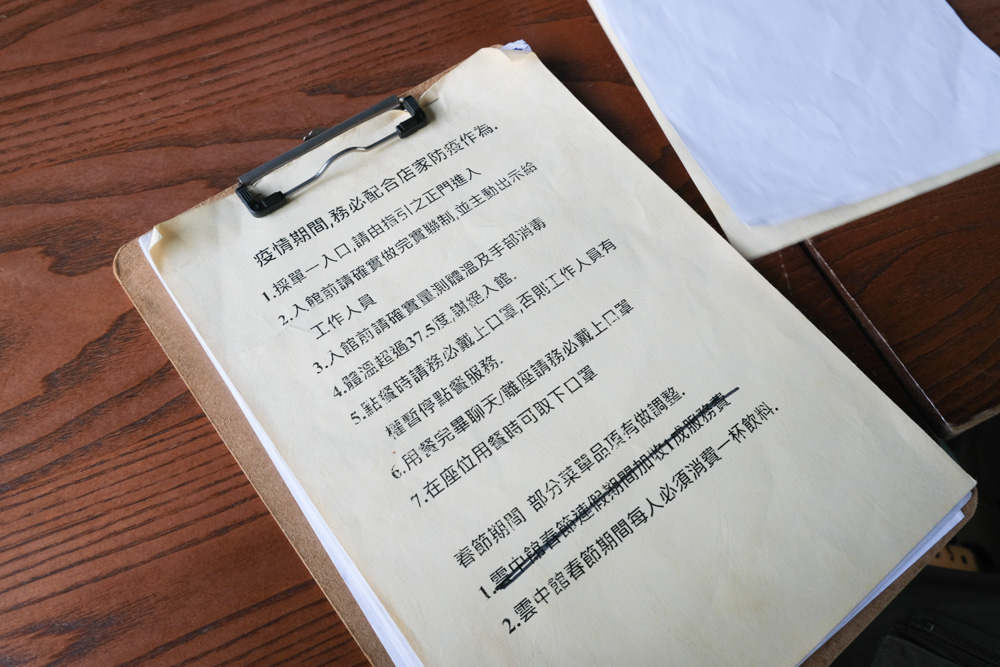 疫情期間,務必配合店家防疫作為.
1.採單一入口,請由指引之正門進入
2.入館前請確實做完實聯制,並主動出示給
工作人員
3.入館前請確實量測體溫及手部消毒
4.體溫超過37.5度,謝絕入館.
5.點餐時請務必戴上口罩,否則工作人員有
權暫停點餐服務.
6.用餐完畢聊天/離座請務必戴上口罩
7.在座位用餐時可取下口罩
春節期間 部分菜單品項有做調整.
1.雲中館春節連假期間加收1成服務費
2.雲中館春節期間每人必須消費一杯飲料.